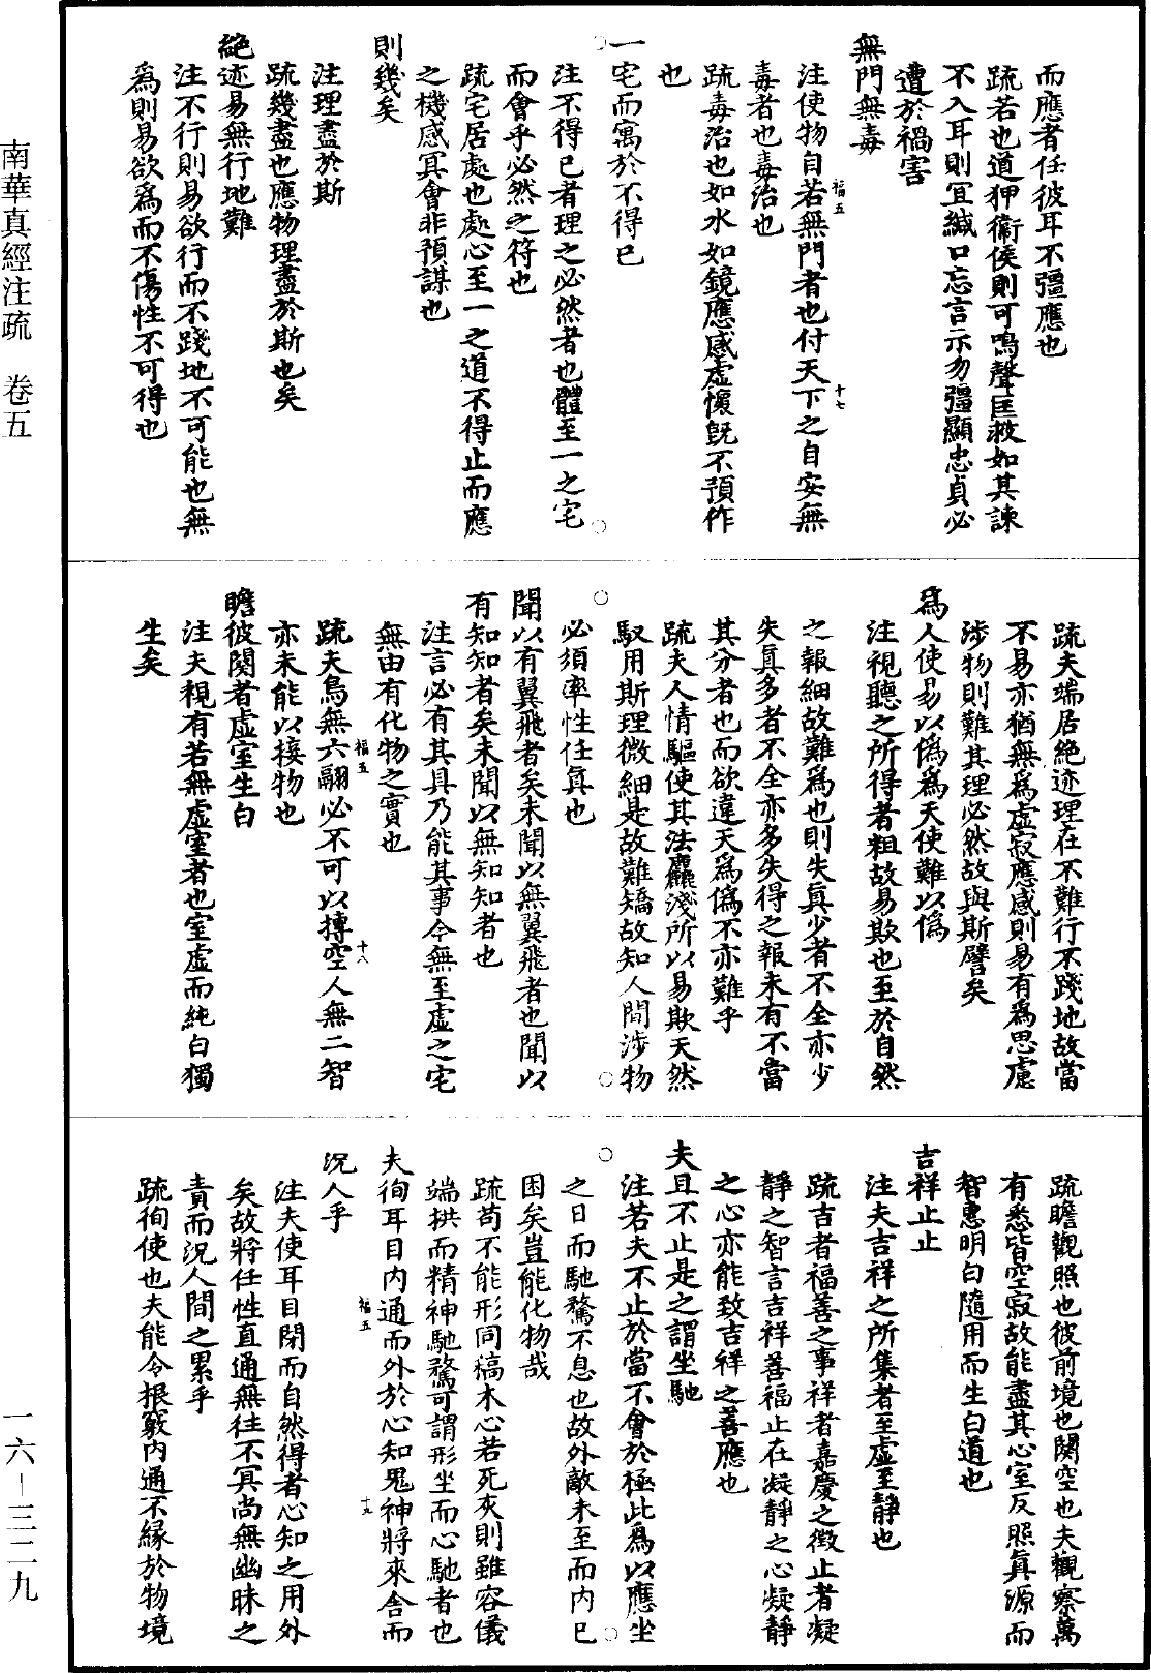 而應者任彼耳不彊應也
疏若也道狎衞侯則可鳴聲匡救如其諫
不入耳則冝緘口忘言示勿彊顯忠貞必
遭於禍害
無門無毒
注使物自若無門者也付天下之自安無
毒者也毒治也
疏毒治也如水如鏡應感虛懷旣不預作
也
一宅而寓於不得已
注不得已者理之必然者也體至一之宅
而會乎必然之符也
疏宅居處也處心至一之道不得止而應
之機感冥會非預謀也
則幾矣
注理盡於斯
疏幾盡也應物理盡於斯也矣
絕迹易無行地難
注不行則易欲行而不踐地不可能也無
爲則易欲爲而不傷性不可得也
疏夫端居絕迹理在不難行不踐地故當
不易亦猶無爲虛寂應感則易有爲思慮
涉物則難其理必然故與斯譬矣
爲人使易以僞爲天使難以僞
注視聽之所得者粗故易欺也至於自然
之報細故難爲也則失眞少者不全亦少
失眞多者不全亦多失得之報未有不當
其分者也而欲違天爲僞不亦難乎
疏夫人情驅使其法麤淺所以易欺天然
馭用斯理微細是故難矯故知人間涉物
必須率性任眞也
聞以有翼飛者矣未聞以無翼飛者也聞以
有知知者矣未聞以無知知者也
注言必有其具乃能其事今無至虛之宅
無由有化物之實也
疏夫鳥無六翮必不可以摶空人無二智
亦未能以接物也
瞻彼闋者虛室生白
注夫視有若無虛室者也室虛而純白獨
生矣
疏瞻觀照也彼前境也闋空也夫觀察萬
有悉皆空寂故能盡其心室反照眞源而
智惠明白隨用而生白道也
吉祥止止
注夫吉祥之所集者至虛至靜也
疏吉者福善之事祥者嘉慶之徵止者凝
靜之智言吉祥善福止在凝靜之心凝靜
之心亦能致吉祥之善應也
夫且不止是之謂坐馳
注若夫不止於當不會於極此爲以應坐
之日而馳騖不息也故外敵未至而內已
困矣豈能化物哉
疏苟不能形同槁木心若死灰則雖容儀
端拱而精神馳騖可謂形坐而心馳者也
夫徇耳目內通而外於心知鬼神將來舍而
況人乎
注夫使耳目閉而自然得者心知之用外
矣故將任性直通無往不冥尚無幽昧之
責而況人間之累乎
疏徇使也夫能令根竅內通不緣於物境
福五
十七
福五
十八
福五
十九
南華真經注疏　卷五
一六－三二九